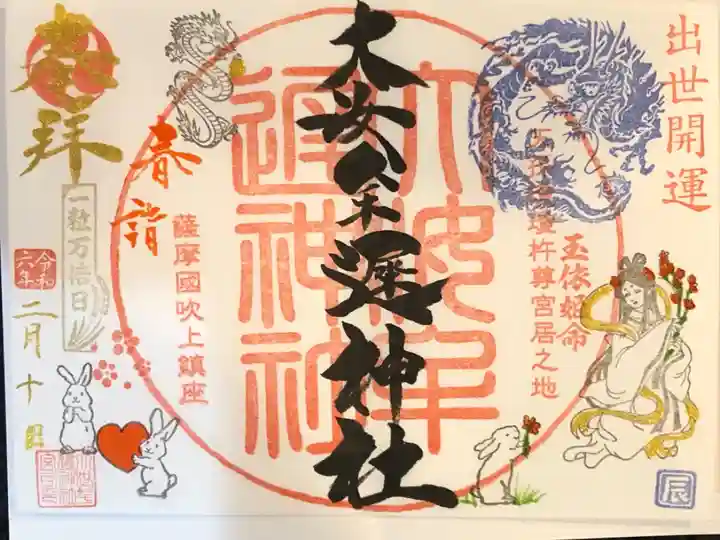 出世開運
玉依姫命
杵尊宮居之地
大汝牟遲神社
大汝牟遲神社
薩摩國吹上鎮座
春詣
奉拝
一粒万倍日
令和六年
二月十日
辰